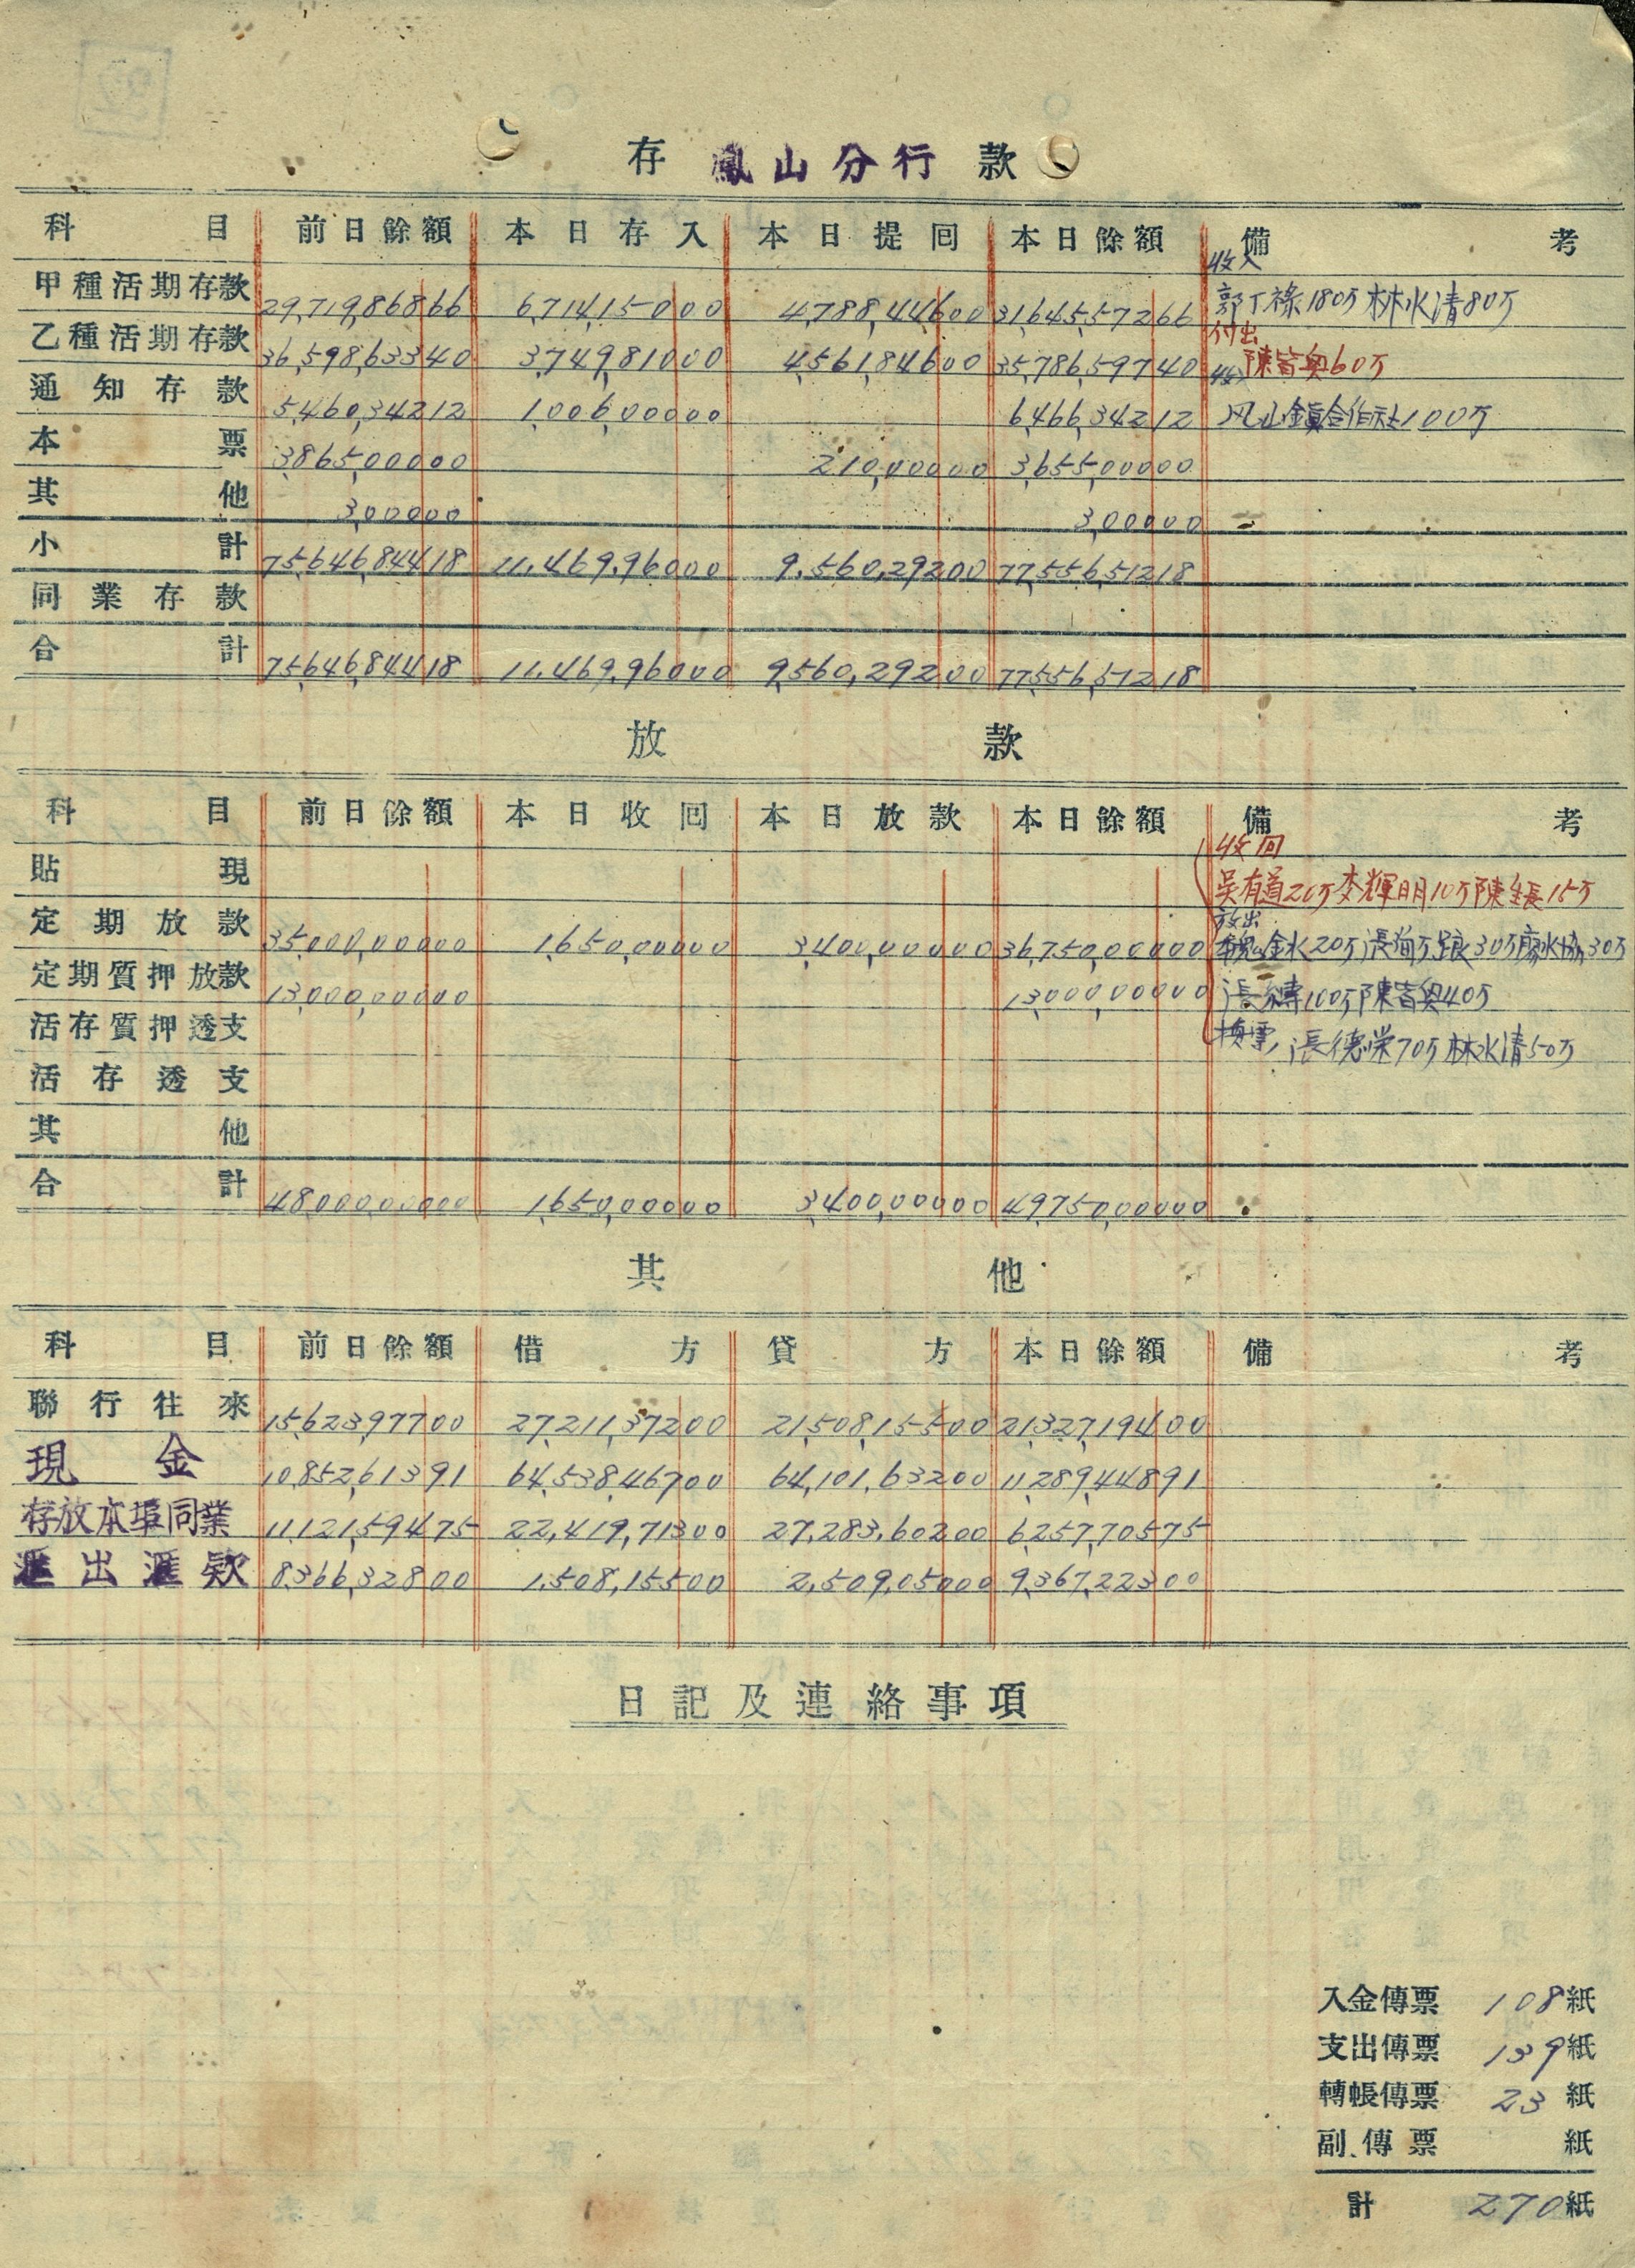 存 鳳山分行 款
科目 前日餘額 本日存入 本日提回 本日餘額 備考
收入
甲種活期存款 29,719,868 66 6,714,150 00 4,788,446 00 31,645,572 66 郭丁祿180万 林水清80万
付出
乙種活期存款 36,598,633 40 3,749,810 00 4,561,846 00 35,786,597 40 陳皆興60万
收入
通知存款 5,460,342 12 1,006,000 00 6,466,342 12 凤山鎮合作社100万
本票 3,865,000 00 210,000 00 3,655,000 00
其他 3,000 00 3,000 00
小計 75,646,844 18 11,469,960 00 9,560,292 00 77,556,512 18
同業存款
合計 75,646,844 18 11,469,960 00 9,560,292 00 77,556,512 18
放款
科目 前日餘額 本日收回 本日放款 本日餘額 備考
收回
貼現 吳有道20万 李輝明10万 陳長15万
放出
定期放款 35,000,000 00 1,650,000 00 3,400,000 00 36,750,000 00 金水20万 30万 廖水協30万
定期質押放款 13,000,000 00 13,000,000 00 張縛100万 陳皆興40万
活存質押透支 張德榮70万 林水清50万
活存透支
其他
合計 48,000,000 00 1,650,000 00 3,400,000 00 49,750,000 00
其他
科目 前日餘額 借方 貸方 本日餘額 備考
聯行往來 15,623,977 00 27,211,372 00 21,508,155 00 21,327,194 00
現金 10,852,613 91 64,538,467 00 64,101,632 00 11,289,448 91
存放本埠同業 11,121,594 75 22,419,713 00 27,283,602 00 6,257,705 75
匯出匯欵 8,366,328 00 1,508,155 00 2,509,050 00 9,367,223 00
日記及連絡事項
入金傳票 108紙
支出傳票 139紙
轉帳傳票 23紙
副傳票 紙
計 270紙